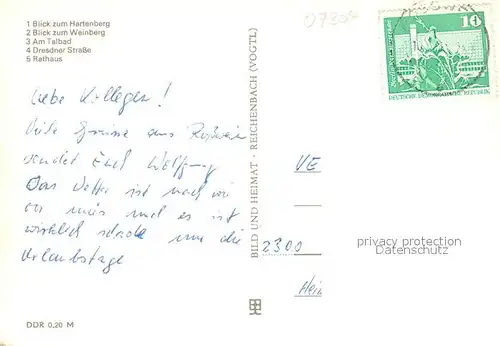 1 Blick zum Hartenberg
2 Blick zum Weinberg
3 Am Talbad
4 Dresdner Straße
5 Rathaus
07304
10
DEUTSCHE DEMOKRATISCHE REPUBLIK
Liebe Kollegen!
Viele Grüsse aus Roßwein
sendet Euch Wolfgang
Das Wetter ist nach wie
vor mies und es ist
wirklich schade um die
Urlaubstage
BILD UND HEIMAT · REICHENBACH (VOGTL)
VE
2300
privacy protection
Datenschutz
DDR 0,20 M